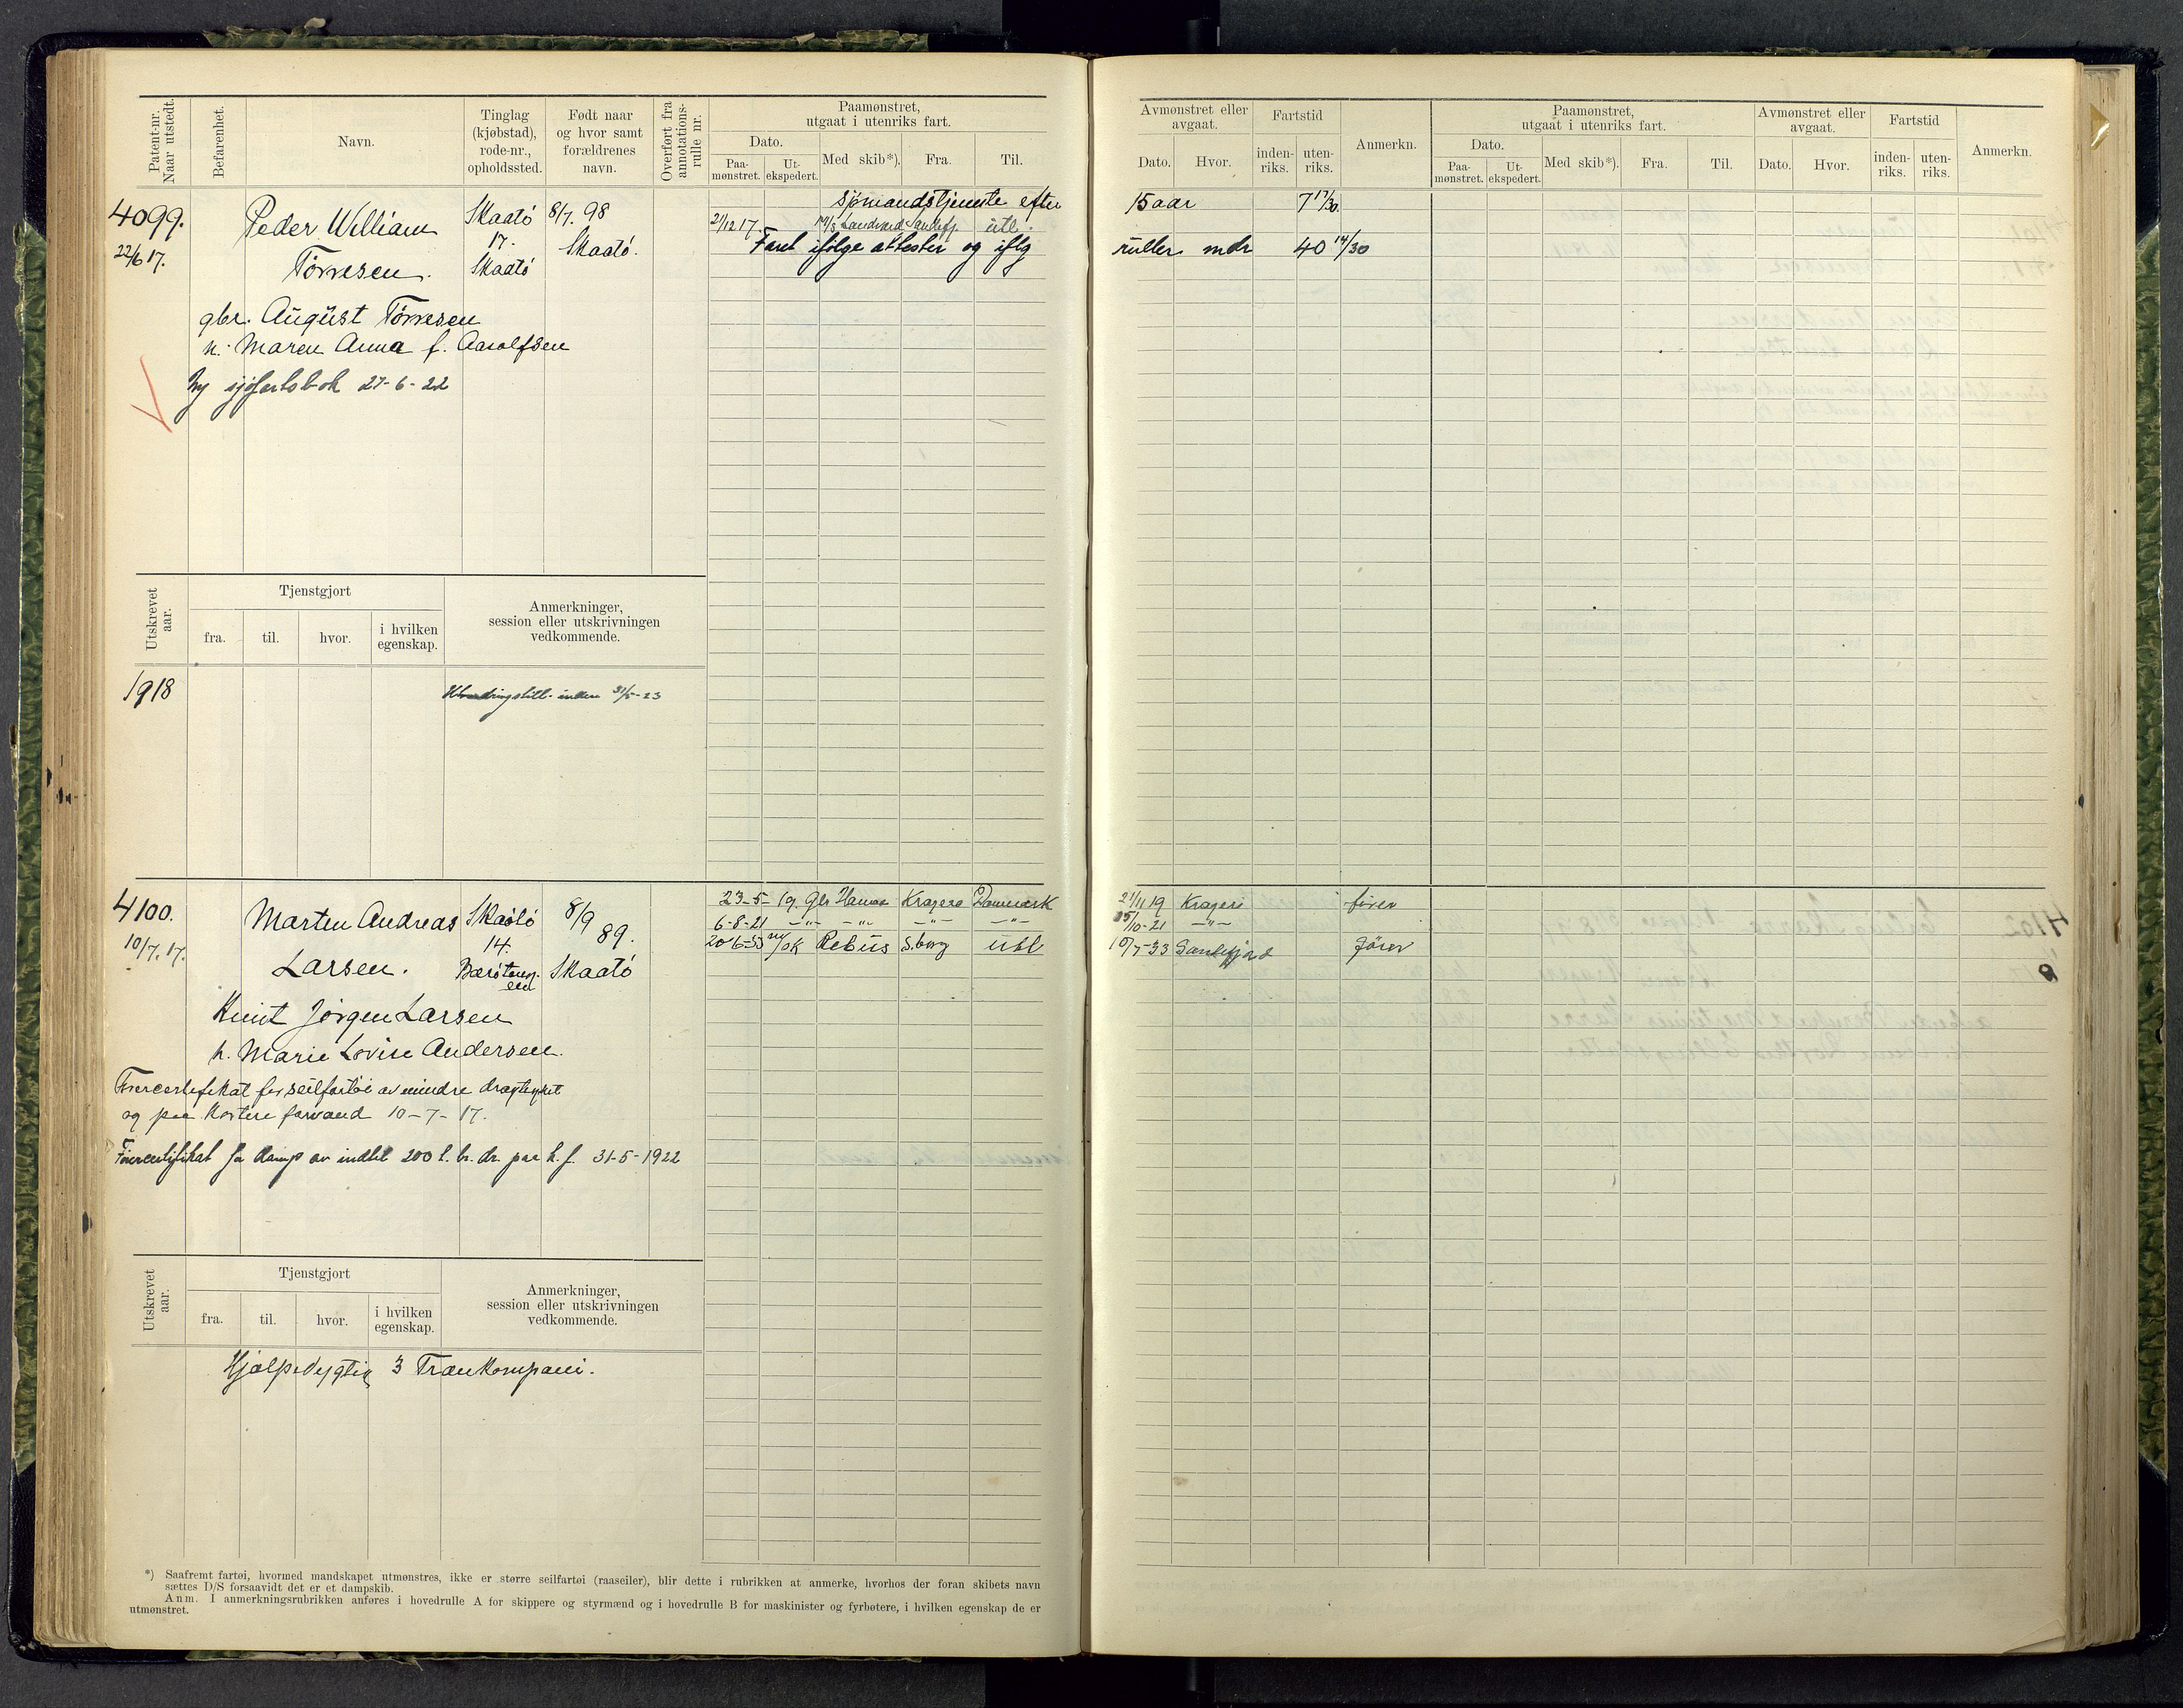 Patent-nr. Naar utstedt.
Befarenhet.
Navn.
Tinglag (kjøbstad), rode-nr., opholdssted.
Født naar og hvor samt forældrenes navn.
Overført fra annotations-rulle nr.
Paamønstret, utgaat i utenriks fart.
Dato.
Paa-mønstret.
Ut-ekspedert.
Med skib*).
Fra.
Til.
Avmønstret eller avgaat.
Dato.
Hvor.
Fartstid
inden-riks.
uten-riks.
Anmerkn.
Paamønstret, utgaat i utenriks fart.
Dato.
Paa-mønstret.
Ut-ekspedert.
Med skib*).
Fra.
Til.
Avmønstret eller avgaat.
Dato.
Hvor.
Fartstid
inden-riks.
uten-riks.
Anmerkn.
4099.
22/6 17.
Peder William
Törresen.
Skaatö
17.
Skaatö
8/7. 98
Skaatö.
gbr. August Törresen
h. Maren Anna f. Aarolfsen
Ny sjöfartsbok 27-6-22
Sjømandstjeneste efter 15 aar 7 17/30.
21/12 17. Sandefj. utl.
Faret ifölge attester og iflg ruller mdr 40 14/30
Utskrevet aar.
Tjenstgjort
fra.
til.
hvor.
i hvilken egenskap.
Anmerkninger, session eller utskrivningen vedkommende.
1918
inden 31/5-23
4100.
10/7. 17.
Marten Andreas
Larsen.
Skaatö
14.
8/9 89.
Skaatö
Knut Jörgen Larsen
h. Marie Lovise Andersen.
Förercertifikat for seilfartöi av mindre drægtighet
og paa kortere farvand 10-7-17.
Förercertifikat for damp av indtil 200 t. br. dr. paa k. f. 31-5-1922
23-5-19. Gls Hamar Kragerø Danmark 21/11 19 Kragerø fører
6-8-21 -"- -"- -"- -"- 25/10-21 -"-
20-6-33 m/sk Rebus S.borg utl 10/7-33 Sandefjord Fører
Utskrevet aar.
Tjenstgjort
fra.
til.
hvor.
i hvilken egenskap.
Anmerkninger, session eller utskrivningen vedkommende.
Hjælpedygtig 3 Trænkompani.
*) Saafremt fartøi, hvormed mandskapet utmønstres, ikke er større seilfartøi (raaseiler), blir dette i rubrikken at anmerke, hvorhos der foran skibets navn
sættes D/S forsaavidt det er et dampskib.
Anm. I anmerkningsrubrikken anføres i hovedrulle A for skippere og styrmænd og i hovedrulle B for maskinister og fyrbøtere, i hvilken egenskap de er
utmønstret.